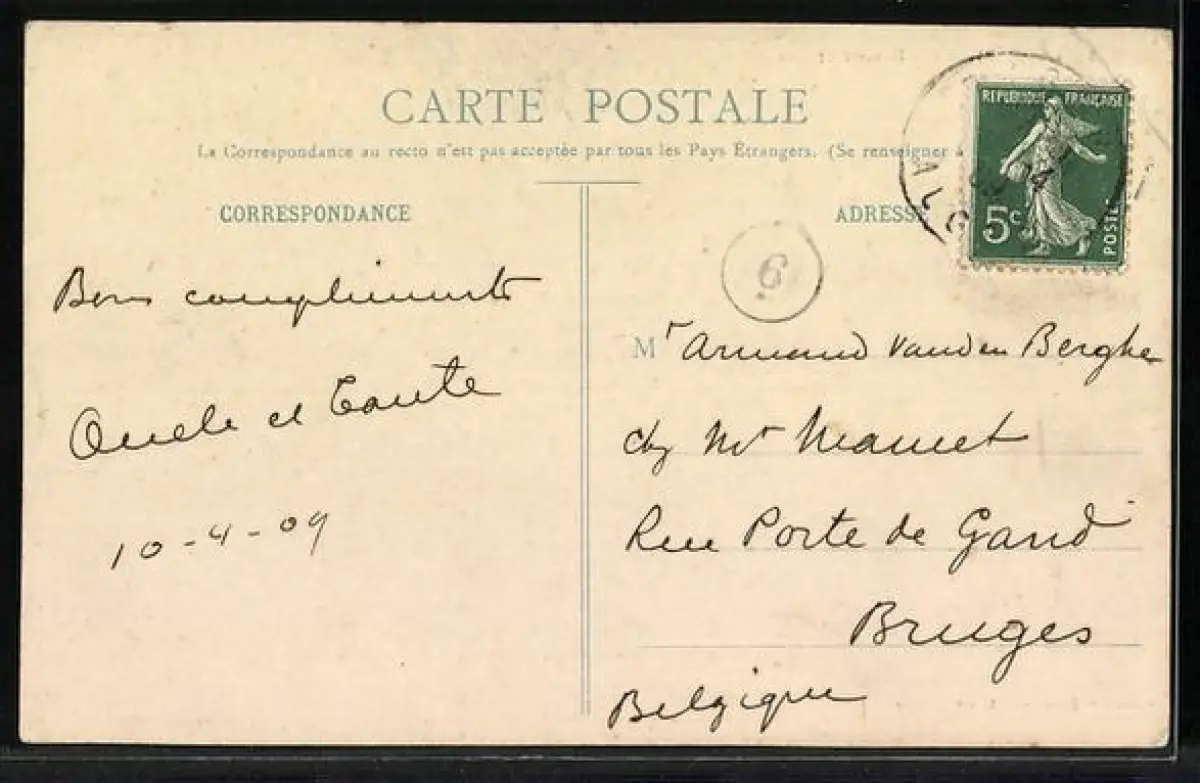 CARTE POSTALE
La Correspondance au recto n'est pas acceptée par tous les Pays Étrangers. (Se renseigner à
CORRESPONDANCE
ADRESSE
REPUBLIQUE FRANÇAISE
5c
POSTES
6
Bons compliments
Oncle et Tante
10-4-09
Mr Armand Vanden Berghe
chz Mr
Rue Porte de Gand
Bruges
Belgique